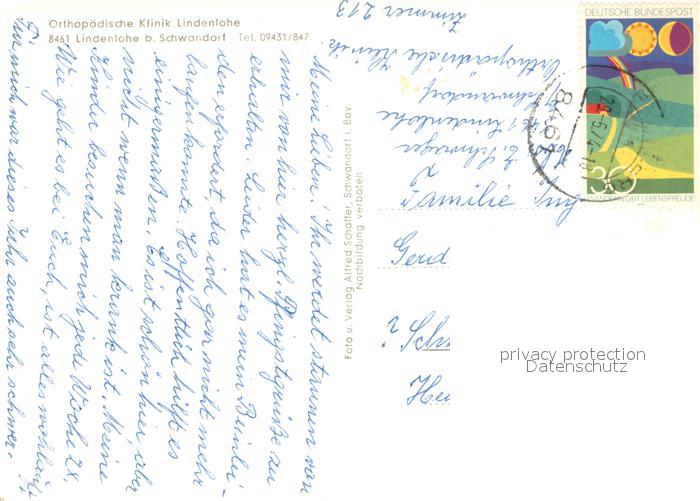 Orthopädische Klinik Lindenlohe
8461 Lindenlohe b. Schwandorf Tel. 09431/847
Meine Lieben! Ihr werdet staunen von
mir von hier herzl. Pfingstgrüße zu
erhalten. Leider hat es mein Bein
den erfordert, da ich gar nicht mehr
laufen konnte. Hoffentlich hilft es
einigermaßen. Es ist schön hier, aber
nicht wenn man krank ist. Meine
Kinder besuchen mich jede Woche 2x.
Wie geht es bei Euch, ist alles wohlauf?
Für mich war dieses Jahr auch sehr schwer.
Foto u. Verlag Alfred Schaffer, Schwandorf i. Bay.
Nachbildung verboten
Zimmer 213
Orthopädische Klinik
Schwandorf
8461 Lindenlohe
DEUTSCHE BUNDESPOST
30
WANDERN GIBT LEBENSFREUDE
8461
Familie
Gerd
Sch
Hei
privacy protection
Datenschutz